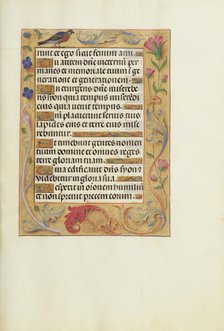 runt et ego sicut fenum arui
Tu autem domine ineternum per
manes et memoriale tuum i
generationem et generationem
Tu exurgens domine misereberis
syon quia tempus miserendi
eius quia uenit tempus
Quoniam placuerunt seruis tuis
lapides eius et terre eius mise
rebuntur
Et timebunt gentes nomen
tuum domine et omnes reges
terre gloriam tuam
Quia edificauit dominus syon
et uidebitur in gloria sua
Respexit in orationem humilium
et non spreuit precem eorum